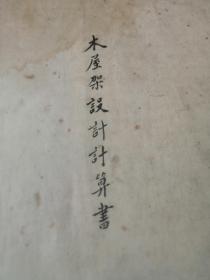 木屋架設計計算書